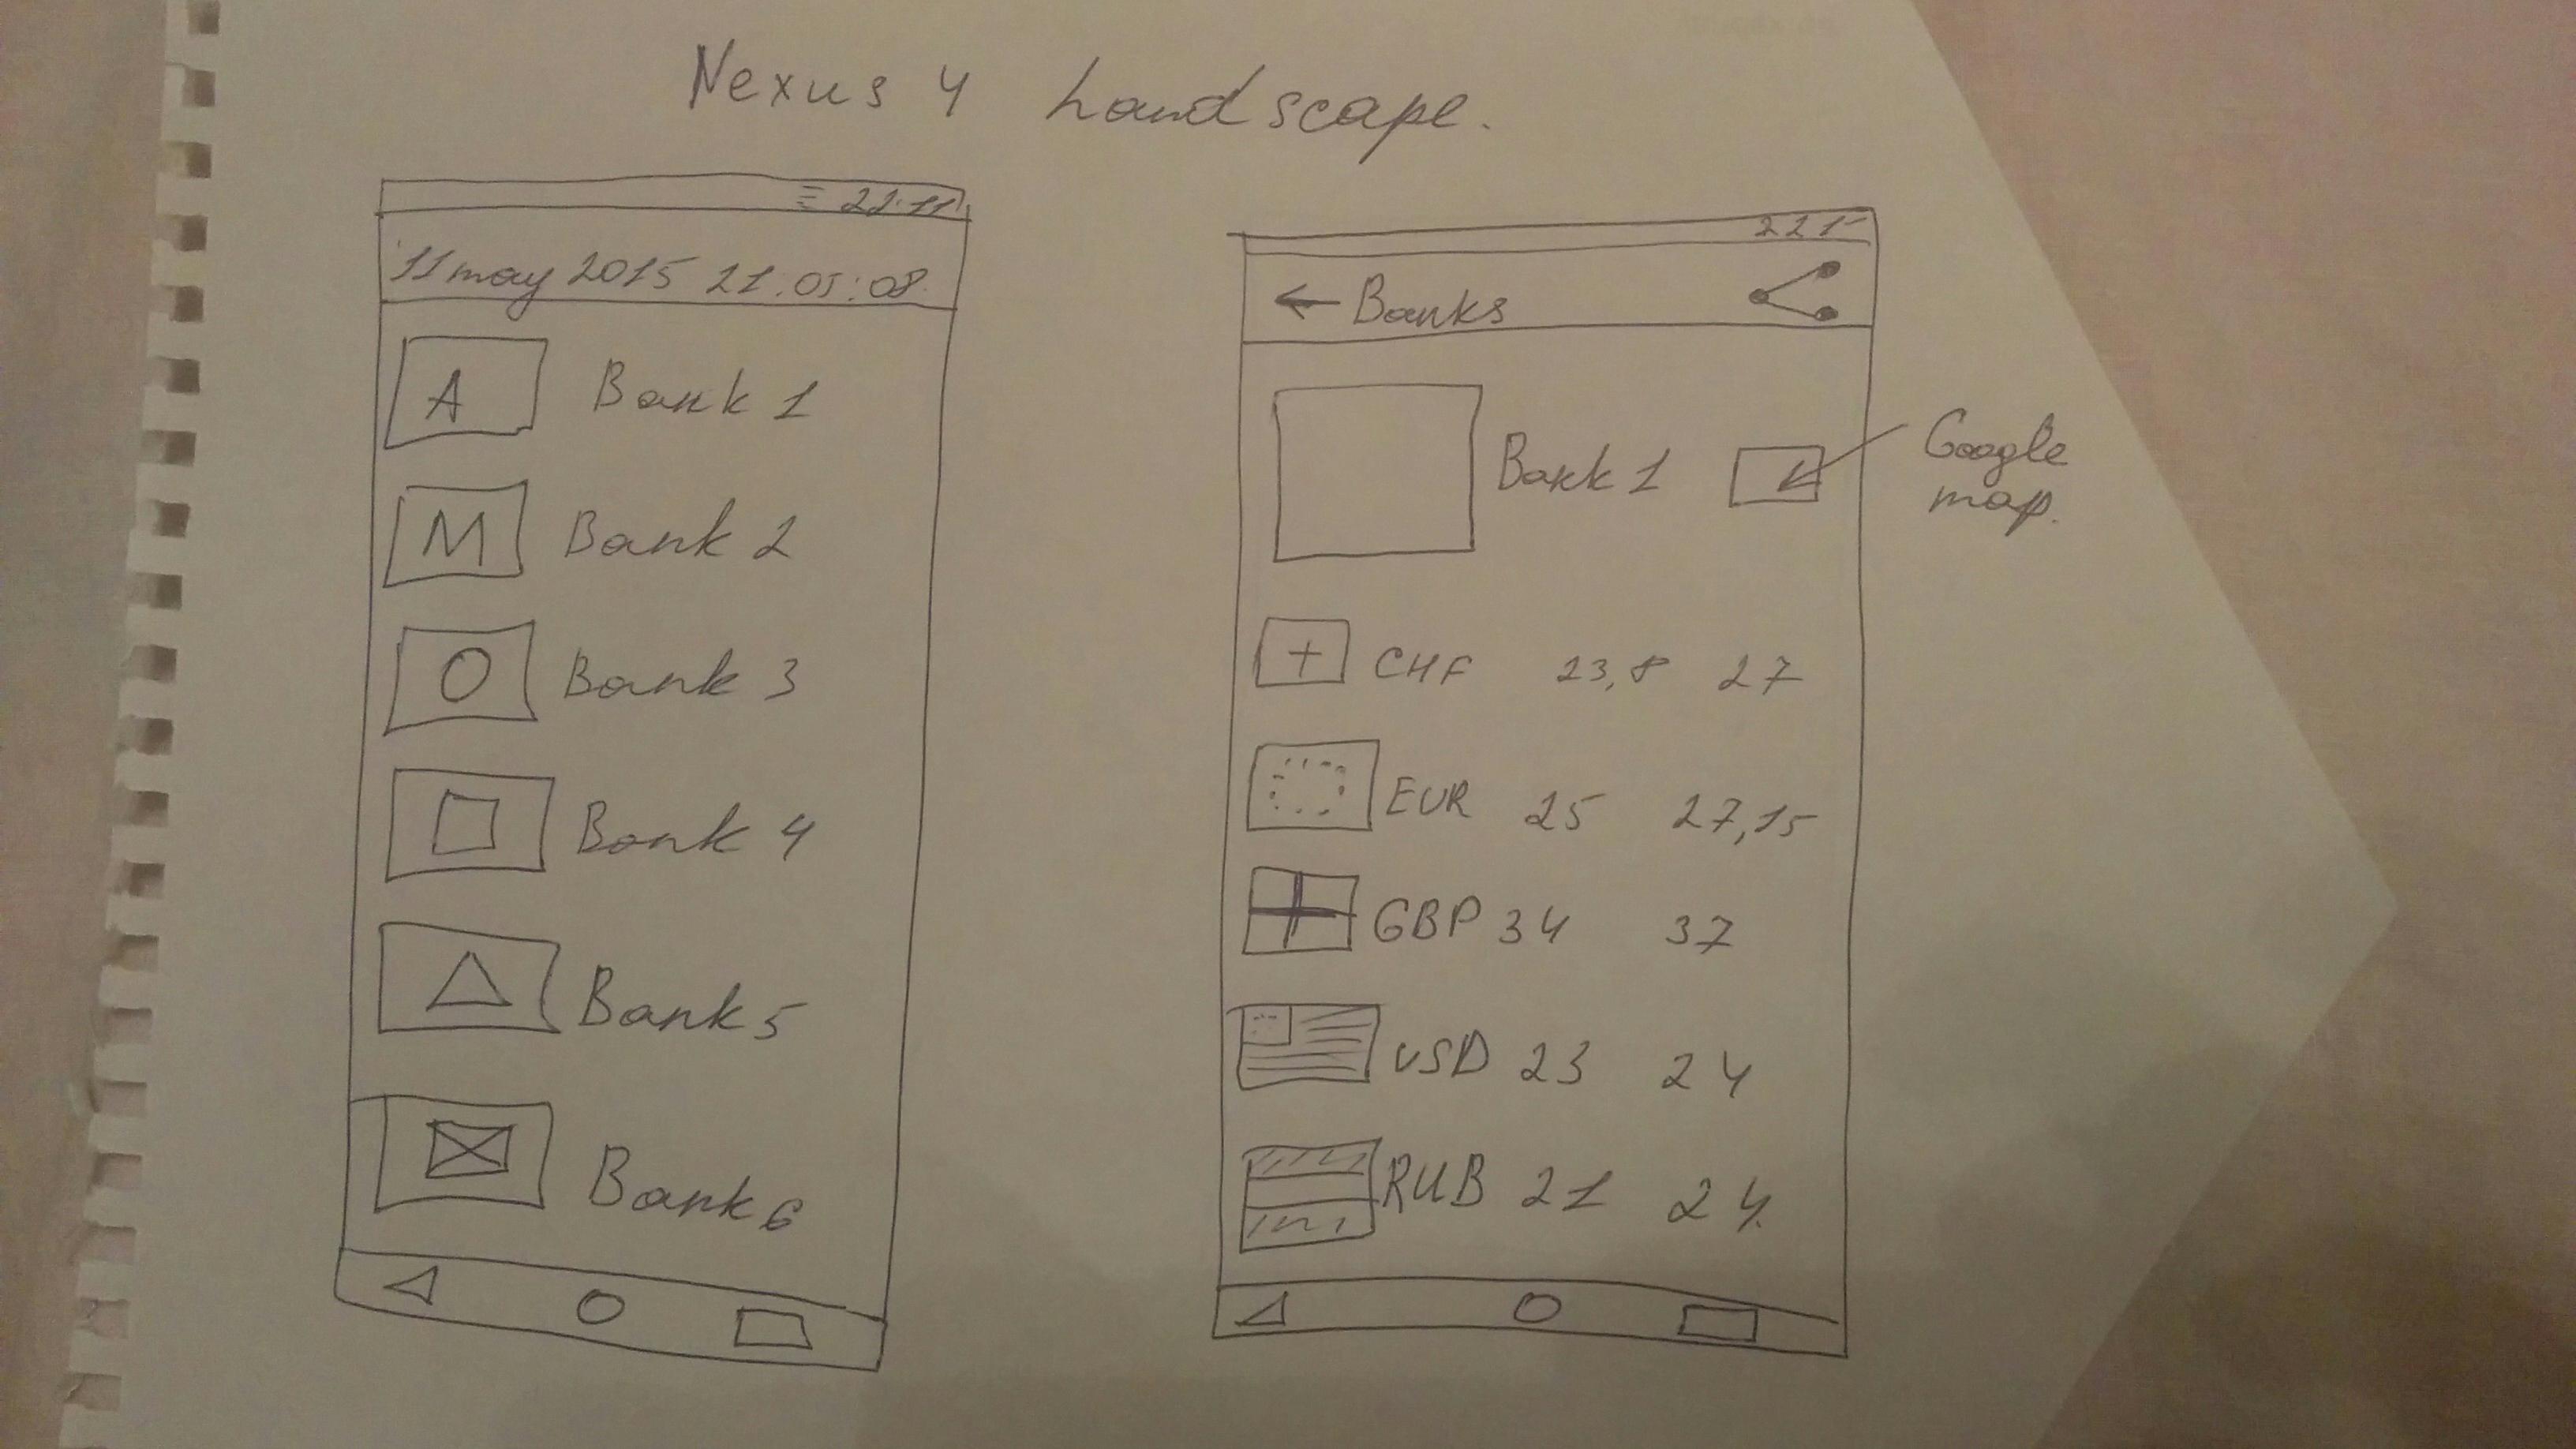 Nexus 4 Landscape.
22:11
11 may 2015 21:05:08
A Bank 1
M Bank 2
Bank 3
Bank 4
Bank 5
Bank 6
← Banks
Bank 1
Google
map.
CHF 23,8 27
EUR 25 27,15
GBP 34 37
USD 23 24
RUB 21 24